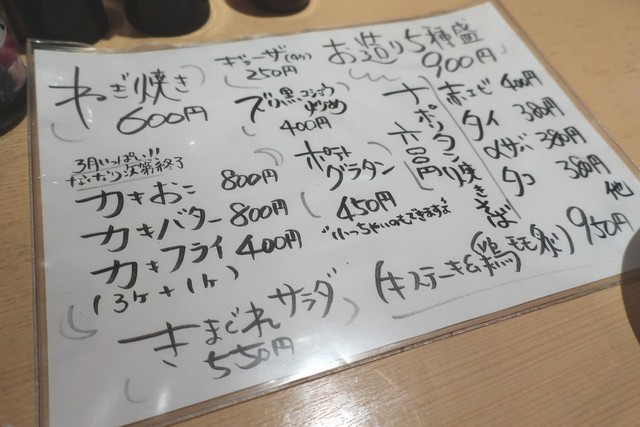 ねぎ焼き
600円
ギョーザ
250円
お造り5種盛
900円
ズリ黒コショウ炒め
400円
ナポリタン焼きそば
赤エビ 400円
タイ 380円
380円
タコ 380円
他
3月いっぱい!!
なくなり次第終了
カキおこ 800円
カキバター 800円
カキフライ 400円
(3ヶ+1ヶ)
ポテトグラタン
450円
"小っちゃいのもできますよ"
牛ステーキ&鶏モモ 950円
きまぐれサラダ
550円